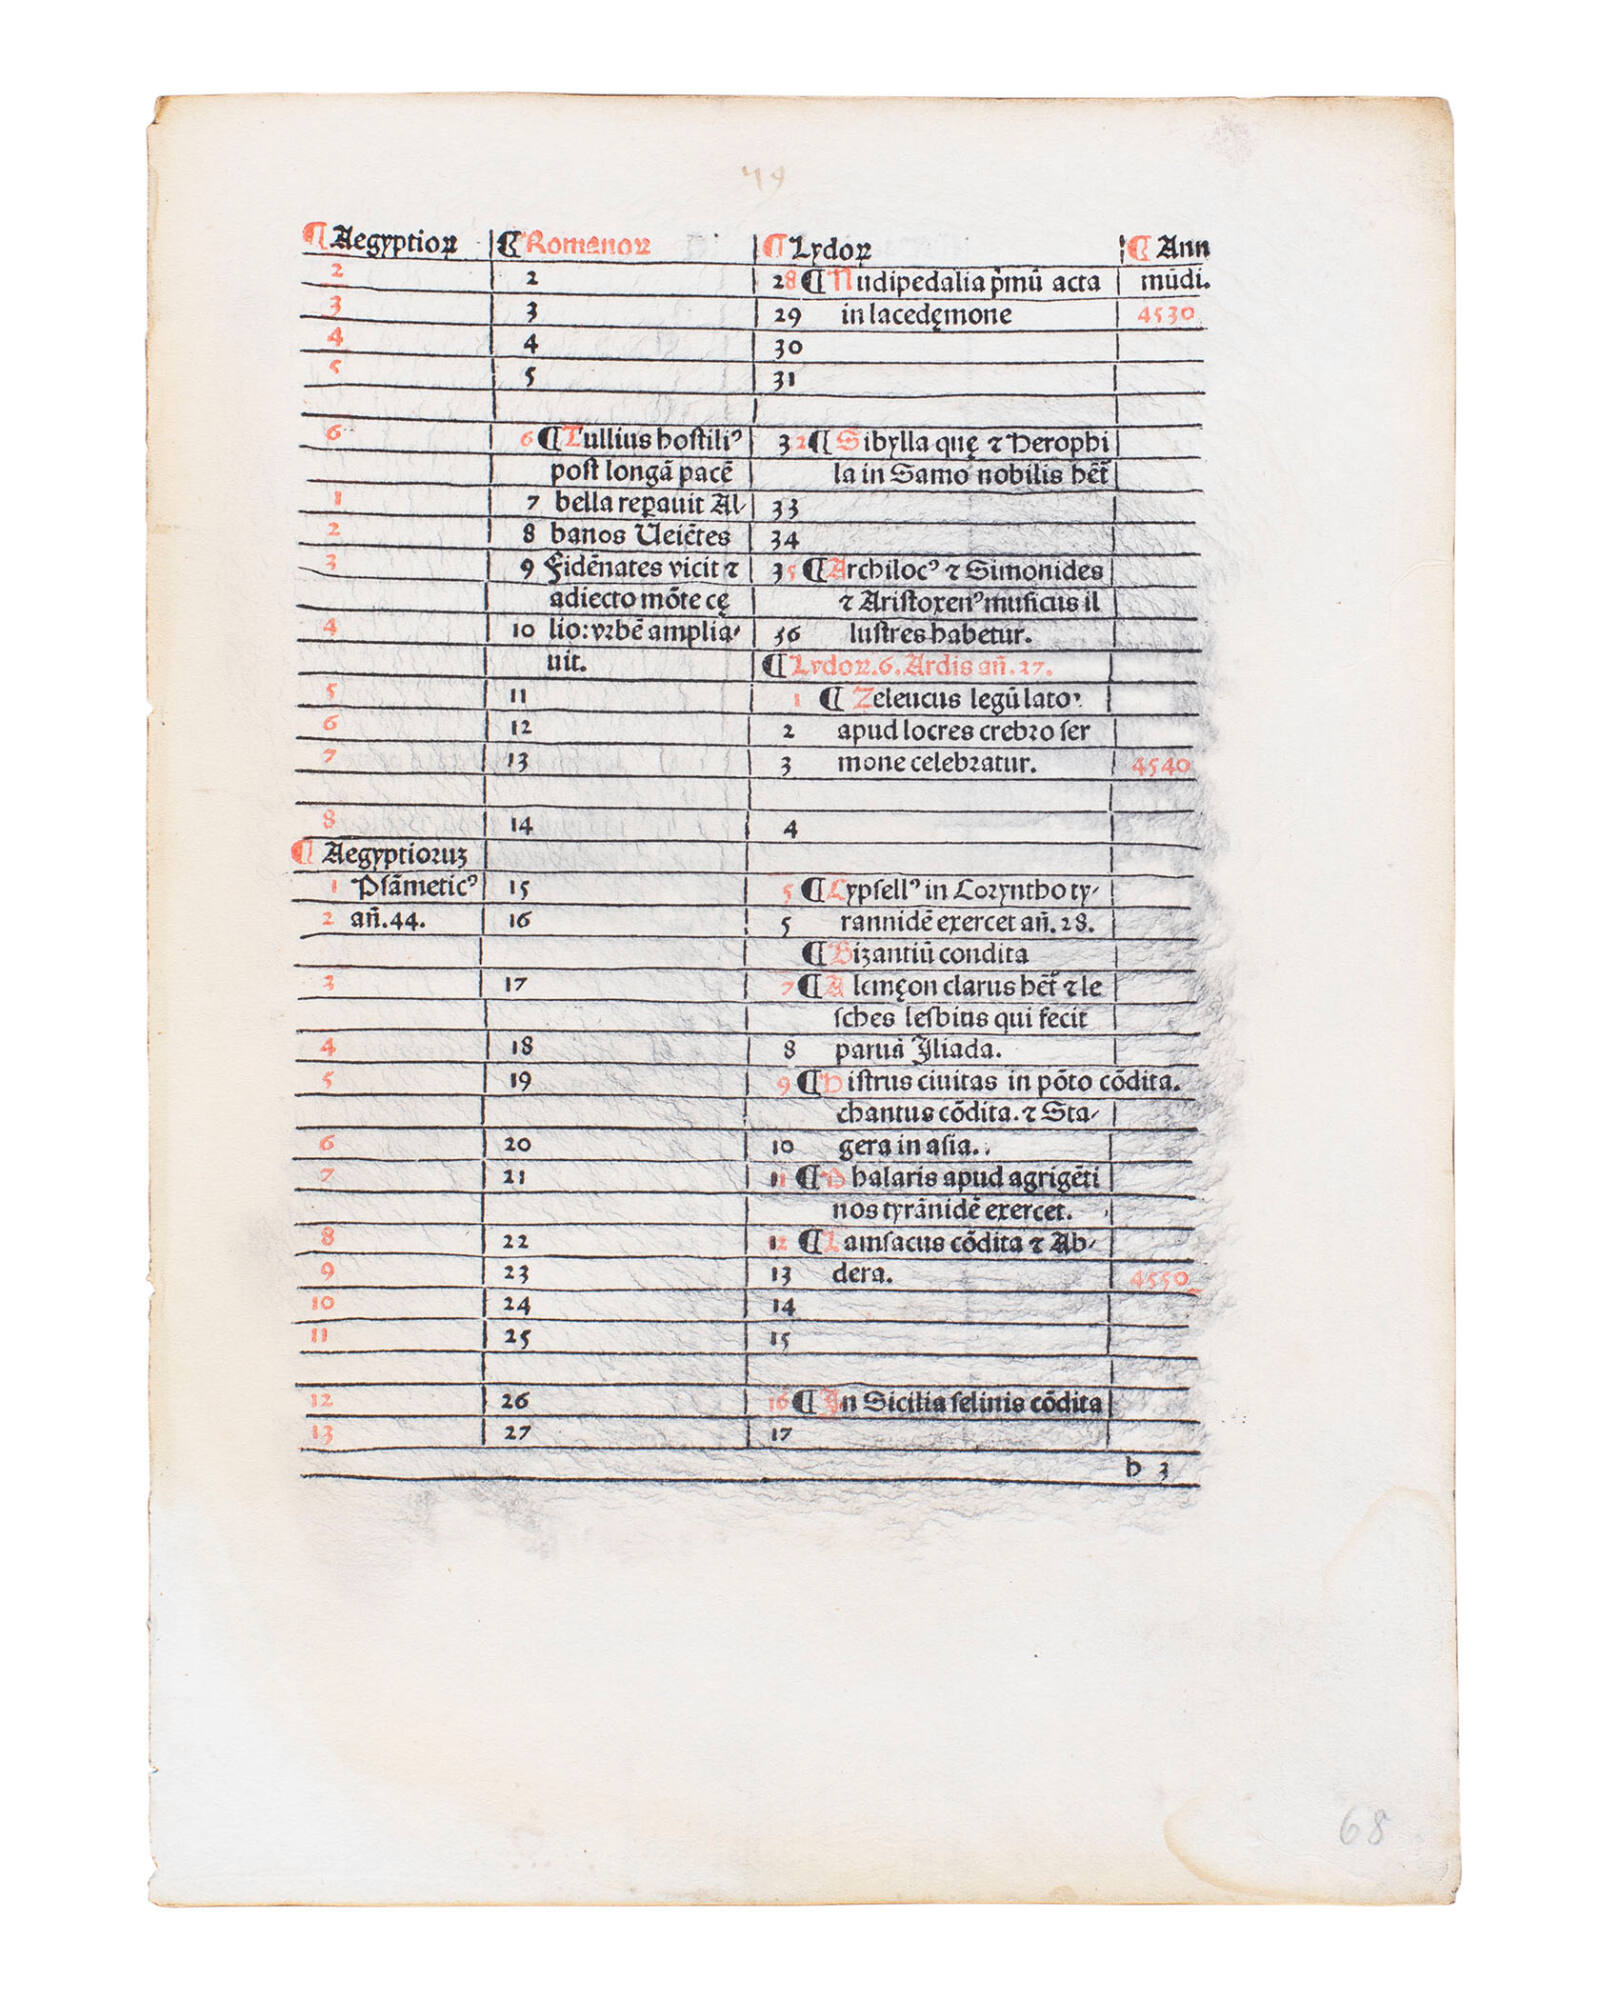 49
¶ Aegyptioꝝ ¶ Romanoꝝ ¶ Lydoꝝ ¶ Ann
2 2 28 ¶ Nudipedalia p̄mū acta mūdi.
3 3 29 in lacedęmone 4530
4 4 30
5 5 31
6 6 ¶ Tullius hostiliꝰ 32 ¶ Sibylla quę ⁊ Herophi
post longā pacē la in Samo nobilis hēt̄
1 7 bella reꝑauit Al⸗ 33
2 8 banos Ueiētes 34
3 9 Fidēnates vicit ⁊ 35 ¶ Archilocꝰ ⁊ Simonides
adiecto mōte cę ⁊ Aristoxenꝰ musicus il
4 10 lio: vrbē amplia⸗ 36 lustres habetur.
uit. ¶ Lydoꝝ.6. Ardis añ.37.
5 11 1 ¶ Zeleucus legū lato
6 12 2 apud locres crebro ser
7 13 3 mone celebratur. 4540
8 14 4
¶ Aegyptioruꝫ
1 Psāmeticꝰ 15 5 ¶ Cypsellꝰ in Corintho ty⸗
2 añ.44. 16 5 rannidē exercet añ.28.
¶ Bizantiū condita
3 17 7 ¶ Alcmęon clarus hēt̄ ⁊ le
sches lesbius qui fecit
4 18 8 paruā Iliada.
5 19 9 ¶ Histrus ciuitas in pōto cōdita.
chantus cōdita. ⁊ Sta⸗
6 20 10 gera in asia.
7 21 11 ¶ Phalaris apud agrigēti
nos tyrānidē exercet.
8 22 12 ¶ Lamsacus cōdita ⁊ Ab⸗
9 23 13 dera. 4550
10 24 14
11 25 15
12 26 16 ¶ In Sicilia selinis cōdita
13 27 17
b 3
68